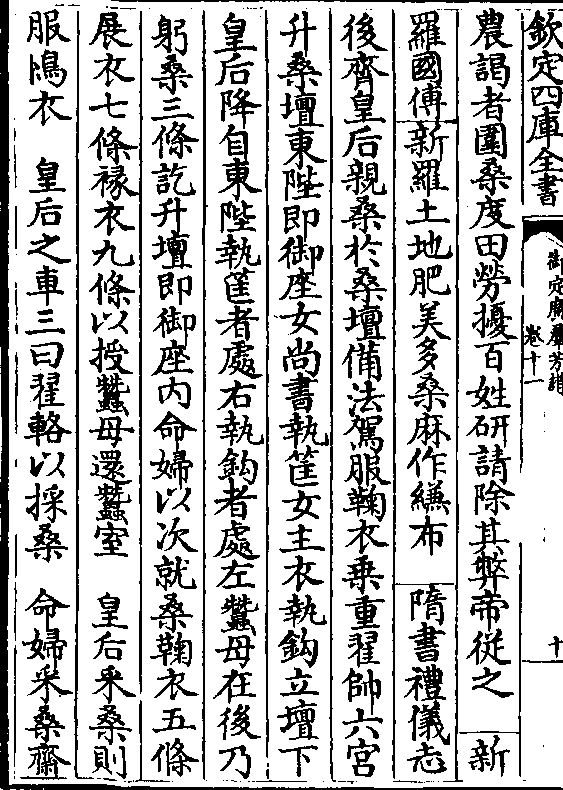 欽定四庫全書
御定廣羣芳譜
卷十一
十
農謁者圍桑度田勞擾百姓研請除其弊帝從之　新
羅國傳新羅土地肥美多桑麻作縑布　隋書禮儀志
後齊皇后親桑於桑壇備法駕服鞠衣乘重翟帥六宮
升桑壇東陛即御座女尚書執筐女主衣執鈎立壇下
皇后降自東陛執筐者處右執鈎者處左蠶母在後乃
躬桑三條訖升壇即御座内命婦以次就桑鞠衣五條
展衣七條褖衣九條以授蠶母還蠶室　皇后釆桑則
服鳲衣　皇后之車三曰翟輅以採桑　命婦釆桑齋